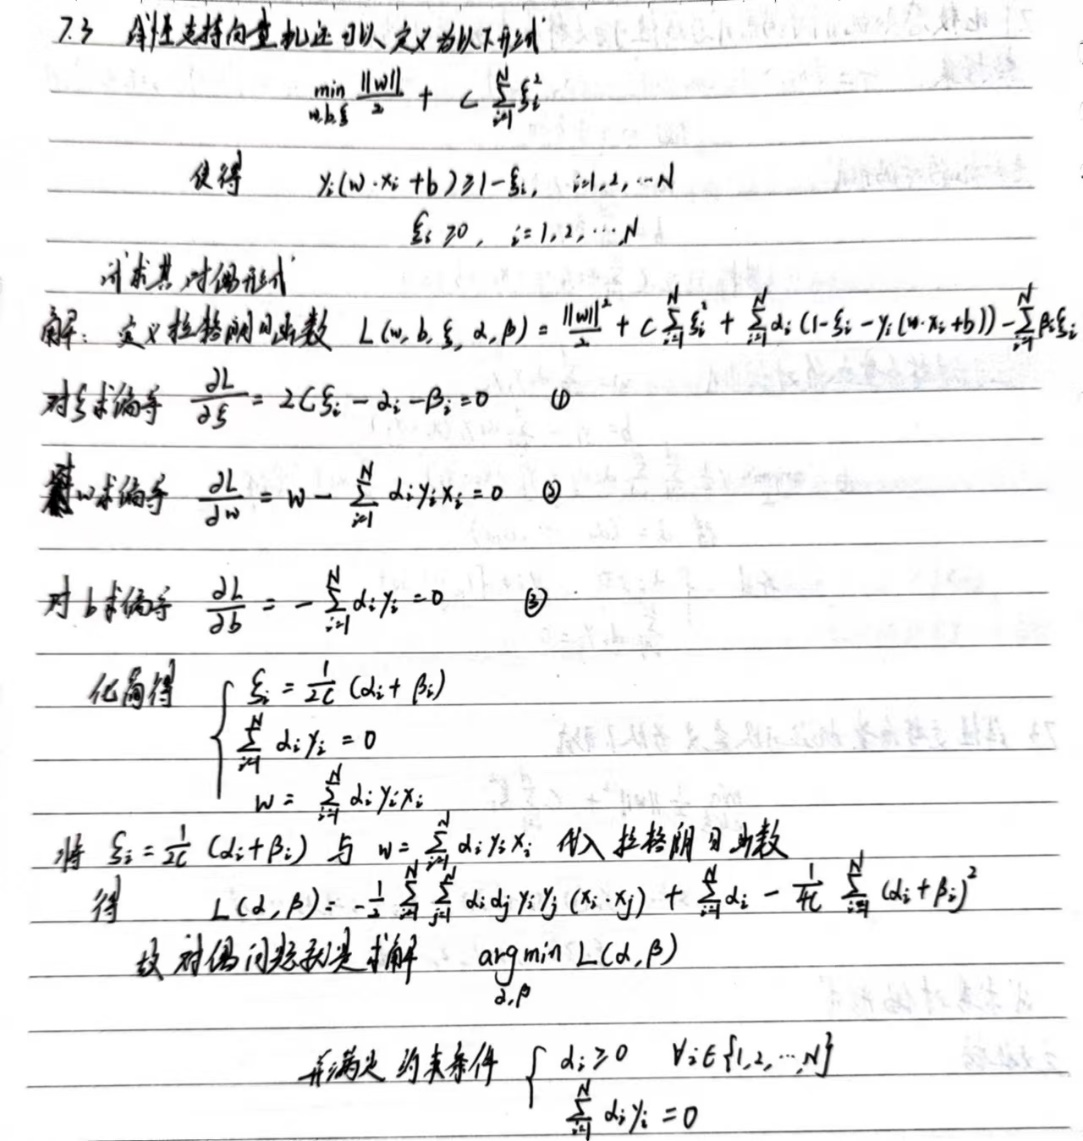 7.3 线性支持向量机还可以定义为以下形式
min w,b,ξ ||w||/2 + C ∑_{i=1}^N ξ_i^2
使得 y_i(w·x_i+b)≥1-ξ_i, i=1,2,…N
ξ_i≥0, i=1,2,…,N
试求其对偶形式
解: 定义拉格朗日函数 L(w,b,ξ,α,β) = ||w||^2/2 + C ∑_{i=1}^N ξ_i^2 + ∑_{i=1}^N α_i(1-ξ_i-y_i(w·x_i+b)) - ∑_{i=1}^N β_iξ_i
对ξ求偏导 ∂L/∂ξ = 2Cξ_i - α_i - β_i = 0 ①
对w求偏导 ∂L/∂w = w - ∑_{i=1}^N α_i y_i x_i = 0 ②
对b求偏导 ∂L/∂b = - ∑_{i=1}^N α_i y_i = 0 ③
化简得 { ξ_i = 1/2C (α_i+β_i)
∑_{i=1}^N α_i y_i = 0
w = ∑_{i=1}^N α_i y_i x_i
将 ξ_i = 1/2C (α_i+β_i) 与 w = ∑_{i=1}^N α_i y_i x_i 代入拉格朗日函数
得 L(α,β) = -1/2 ∑_{i=1}^N ∑_{j=1}^N α_i α_j y_i y_j (x_i·x_j) + ∑_{i=1}^N α_i - 1/4C ∑_{i=1}^N (α_i+β_i)^2
故对偶问题就是求解 argmin α,β L(α,β)
并满足约束条件 { α_i≥0 ∀i∈{1,2,…,N}
∑_{i=1}^N α_i y_i = 0